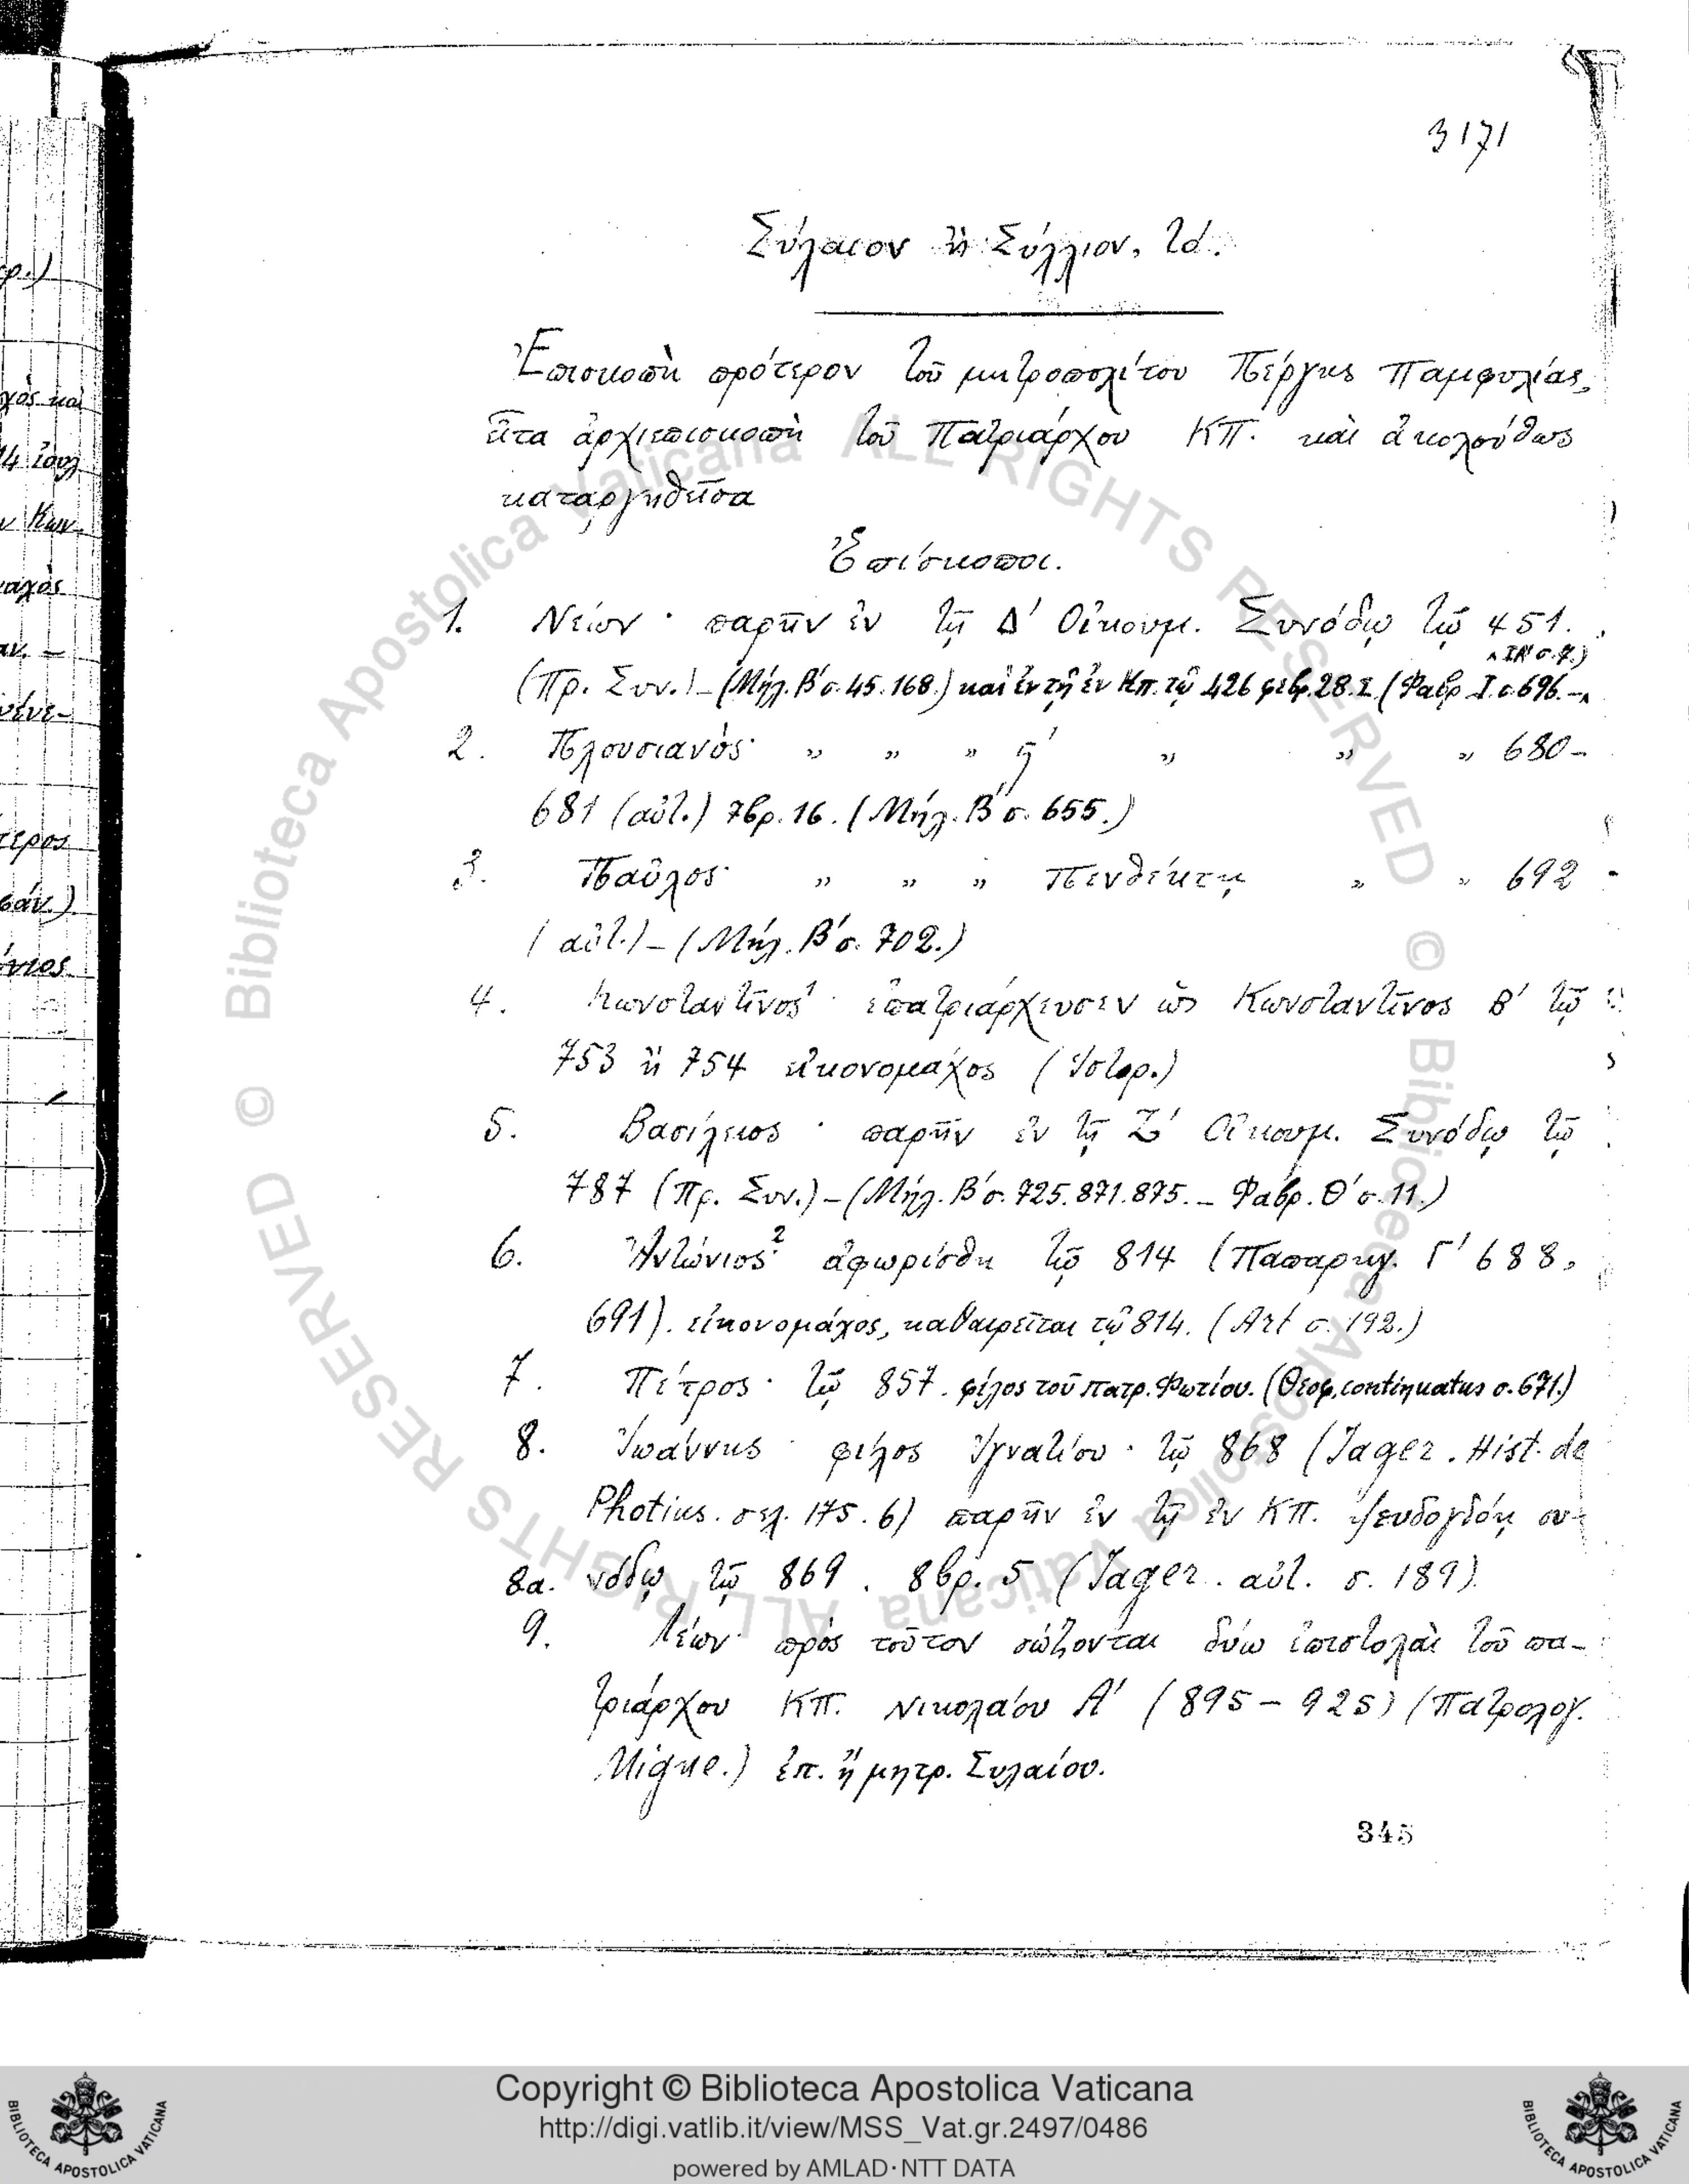 3171
Σύλαιον ἢ Σύλλιον, τό.
Ἐπισκοπὴ πρότερον τοῦ μητροπολίτου Πέργης Παμφυλίας,
εἶτα ἀρχιεπισκοπὴ τοῦ Πατριάρχου ΚΠ. καὶ ἀκολούθως
καταργηθεῖσα
Ἐπίσκοποι.
1. Νέων · παρῆν ἐν τῇ Δ' Οἰκουμ. Συνόδῳ τῷ 451.
(Πρ. Συν.) – (Μήλ. Β' σ. 45. 168.) καὶ ἐν τῇ ἐν Κπ. τῷ 426 φεβρ. 28. Σ. (Φαβρ. Σ. 696. –
2. Πλουσιανὸς · „ „ „ ϛ' „ „ „ 680 –
681 (αὐτ.) 7βρ. 16. (Μήλ. Β' σ. 655.)
3. Παῦλος · „ „ „ Πενθέκτῃ „ „ 692
(αὐτ.) – (Μήλ. Β' σ. 702.)
4. Κωνσταντῖνος¹ · ἐπατριάρχευσεν ὡς Κωνσταντῖνος Β' τῷ
753 ἢ 754 εἰκονομάχος (Ἱστορ.)
5. Βασίλειος · παρῆν ἐν τῇ Ζ' Οἰκουμ. Συνόδῳ τῷ
787 (Πρ. Συν.) – (Μήλ. Β' σ. 725. 871. 875. – Φαβρ. Θ' σ. 11.)
6. Ἀντώνιος² · ἀφωρίσθη τῷ 814 (Παπαρηγ. Γ' 688,
691). εἰκονομάχος, καθαιρεῖται τῷ 814. (Art σ. 192.)
7. Πέτρος · τῷ 857. φίλος τοῦ πατρ. Φωτίου. (Θεοφ. continuatus σ. 671.)
8. Ἰωάννης · φίλος Ἰγνατίου · τῷ 868 (Jager. Hist. de
Photius. σελ. 175. 6) παρῆν ἐν τῇ ἐν ΚΠ. ψευδογδόῃ συ-
8α. νόδῳ τῷ 869. 8βρ. 5 (Jager. αὐτ. σ. 189).
9. Λέων · πρὸς τοῦτον σώζονται δύω ἐπιστολαὶ τοῦ πα-
τριάρχου ΚΠ. Νικολάου Α' (895 – 925) (Πατρολογ.
Migne.) ἐπ. ἢ μητρ. Συλαίου.
345
Copyright © Biblioteca Apostolica Vaticana
http://digi.vatlib.it/view/MSS_Vat.gr.2497/0486
powered by AMLAD·NTT DATA